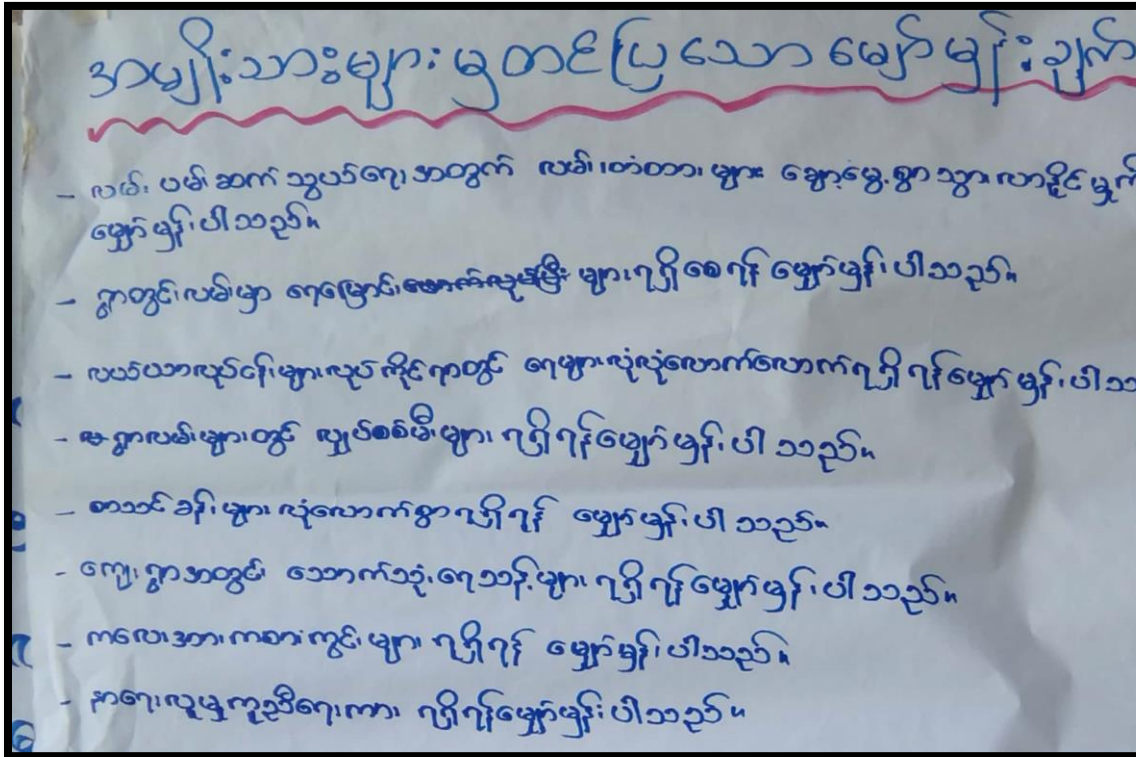 အမျိုးသားများမှတင်ပြသော မျှော်မှန်းချက်
- လမ်းပမ်းဆက်သွယ်ရေးအတွက် လမ်း၊တံတားများ ချောမွေ့စွာသွားလာနိုင်မှုကို
မျှော်မှန်းပါသည်။
- ရွာတွင်းလမ်းမှာ ရေမြောင်း များရရှိစေရန် မျှော်မှန်းပါသည်။
- လယ်ယာလုပ်ငန်းများလုပ်ကိုင်ရာတွင် ရေများလုံလုံလောက်လောက်ရရှိရန်မျှော်မှန်းပါသ
- ရွာလမ်းများတွင် လျှပ်စစ်မီးများ ရရှိရန်မျှော်မှန်းပါသည်။
- စာသင်ခန်းများလုံလောက်စွာရရှိရန် မျှော်မှန်းပါသည်။
- ကျေးရွာအတွင်း သောက်သုံးရေသန့်များ ရရှိရန်မျှော်မှန်းပါသည်။
- ကလေးအားကစားကွင်းများ ရရှိရန် မျှော်မှန်းပါသည်။
- နာရေးလူမှုကူညီရေးကား ရရှိရန်မျှော်မှန်းပါသည်။